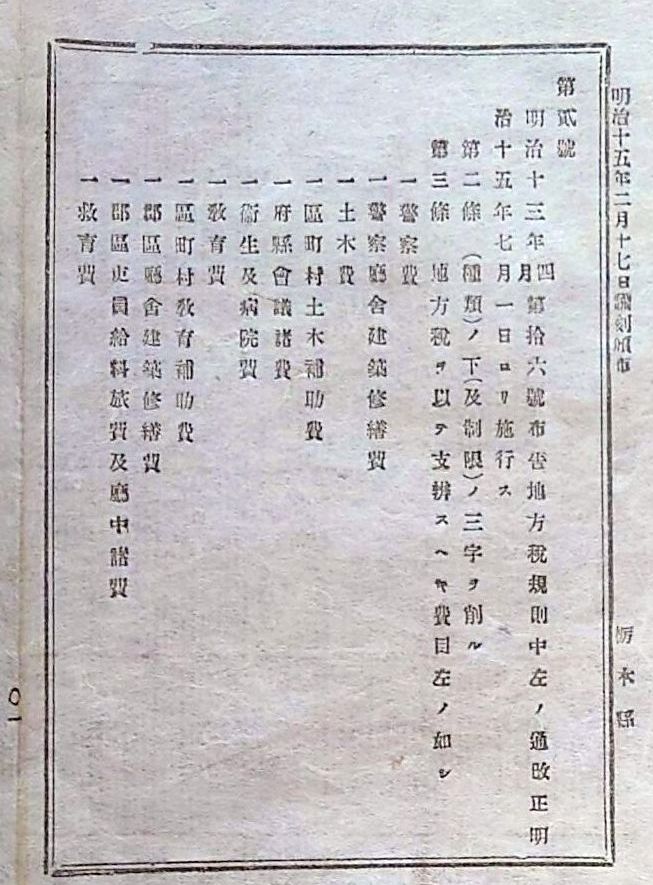 明治十五年二月十七日飜刻頒布
栃木縣
第貳號
明治十三年四月第拾六號布告地方稅規則中左ノ通改正明
治十五年七月一日ヨリ施行ス
第二條 (種類)ノ下(及制限)ノ三字ヲ削ル
第三條 地方稅ヲ以テ支辨スヘキ費目左ノ如シ
一警察費
一警察廳舍建築修繕費
一土木費
一區町村土木補助費
一府縣會議諸費
一衞生及病院費
一敎育費
一區町村敎育補助費
一郡區廳舍建築修繕費
一郡區吏員給料旅費及廳中諸費
一救育費
01